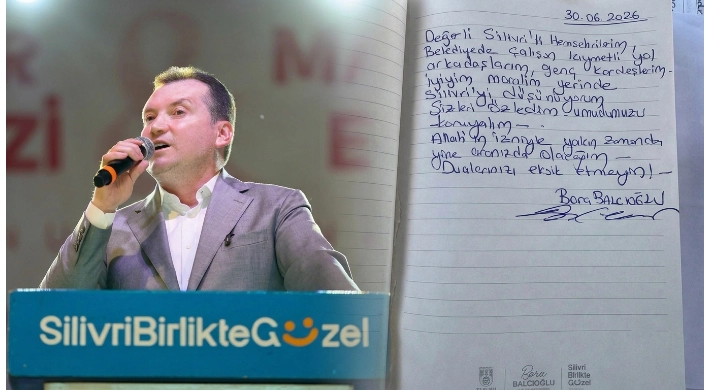 SilivriBirlikteGüzel
30.06.2026
Değerli Silivri'li Hemşehrilerim,
Belediyede çalışan kıymetli yol
arkadaşlarım, genç kardeşlerim -
iyiyim moralim yerinde
Silivri'yi düşünüyorum
Sizleri özledim - umudumuzu
koruyalım -
Allah'ın izniyle yakın zamanda
yine aranızda olacağım -
Dualarınızı eksik etmeyin! -
Bora BALCIOĞLU
Bora
BALCIOĞLU
Silivri
Birlikte
Güzel